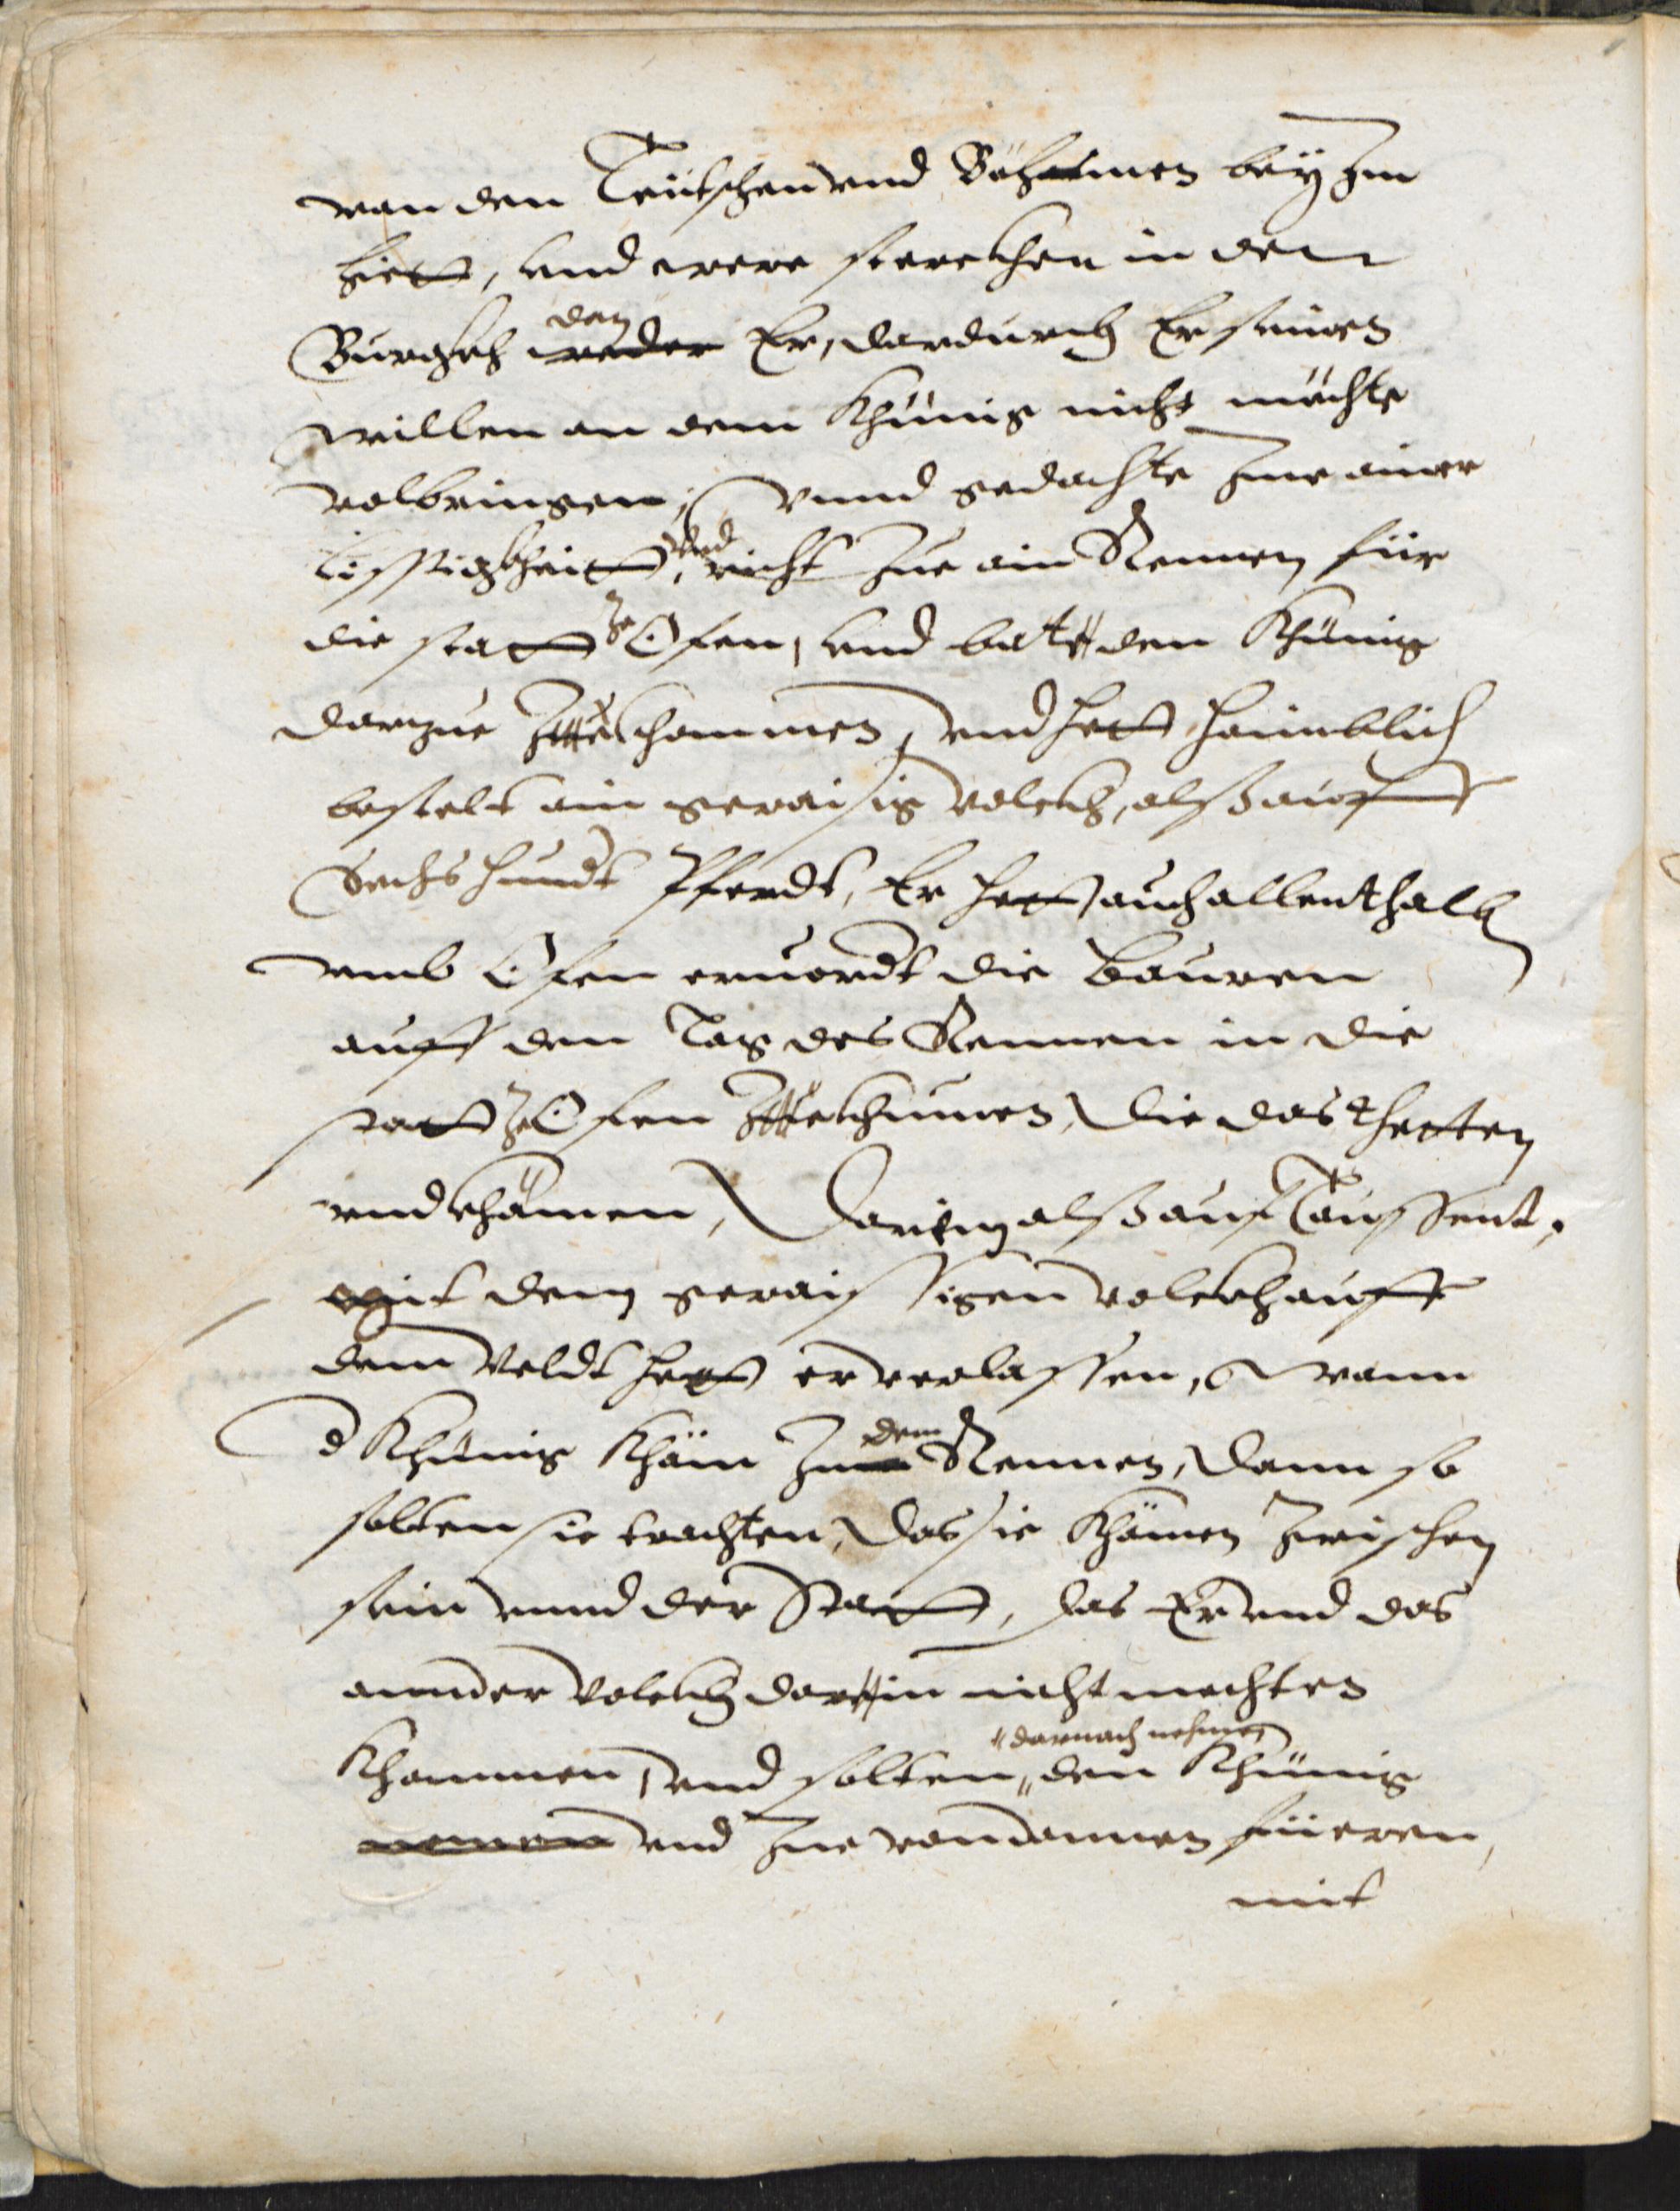 von den Teütschen vnd Böhaimen bey Im
hiett, vnd were sterckher in dem
Burgkh weder den Er, dardurch Er seinen
willen an dem Khünig nicht möchte
volbringen; Vnnd gedachte Zue ainer
Lisstigkheitt, vnd richt Zue ain Rennen für
die statt ze Ofen, vnd bate den Khünig
darzue Zue khommen, vnd hett haimblich
bestelt ain geraisig volckh, alß auff
Sechs hundt Pferdt, Er hett auch allenthalb
vmb Ofen eruordt die Bauren
auff den Tag des Rennen in die
statt ze Ofen Zue khumen, die das thetten
vnd khämen, Darein alß auf Taussent,
mit dem geraissigen volckh auff
dem Veldt hett er verlassen, wann
d Khünig khäm Zue dem Rennen, dann so
solten sie trachten, das sie khämen Zwischen
sein vnnd der Statt, das Er vnd das
annder Volckh darein nicht mechten
khommen, vnd solten "darnach nehmen" den Khünig
nemen vnd Zue von dannen füeren,
mit